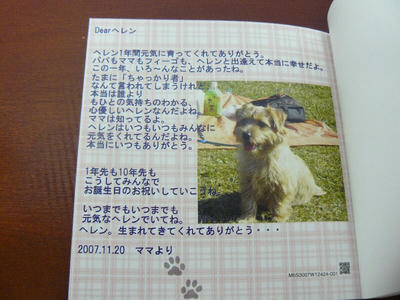 Dearヘレン
ヘレン1年間元気に育ってくれてありがとう。
パパもママもフィーゴも、ヘレンと出逢えて本当に幸せだよ。
この一年、いろ～んなことがあったね。
たまに「ちゃっかり者」
なんて言われてしまうけれど、
本当は誰より
もひとの気持ちのわかる、
心優しいヘレンなんだよね。
ママは知ってるよ。
ヘレンはいつもいつもみんなに
元気をくれてるんだよね。
本当にいつもありがとう。
1年先も10年先も
こうしてみんなで
お誕生日のお祝いしていこうね。
いつまでもいつまでも
元気なヘレンでいてね。
ヘレン。生まれてきてくれてありがとう・・・
2007.11.20 ママより
M6S3007W12424-001